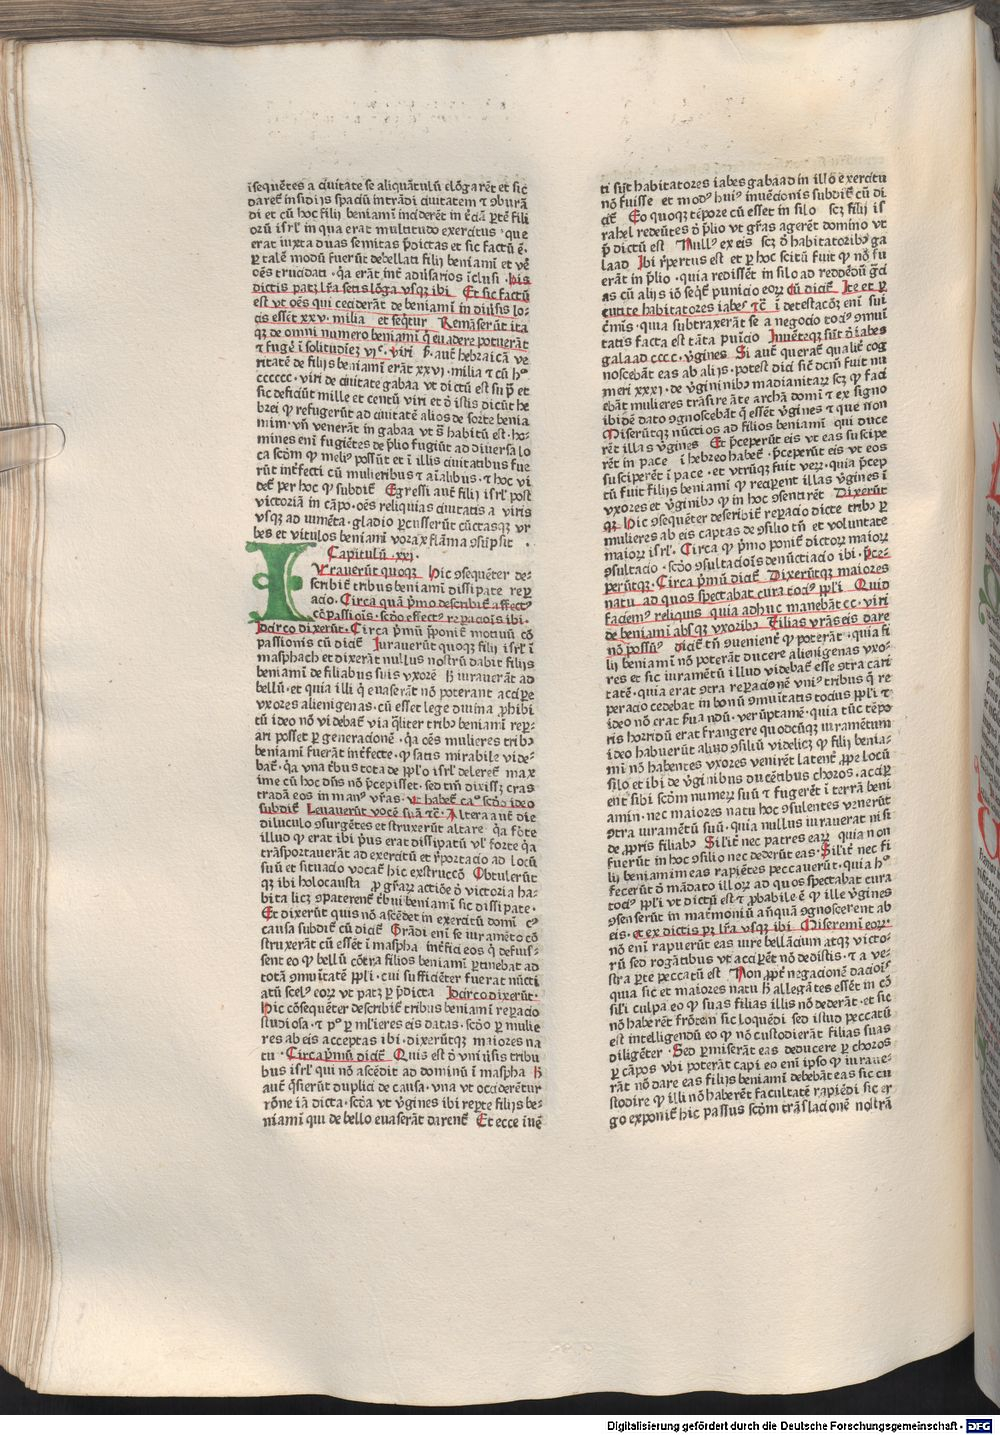 īsequētes a ciuitate se aliquātulū elōgarēt et sic
darēt insidijs spaciū intrādi ciuitatem ⁊ ꝯburā
di et cū hoc filij beniamī inciderēt in ēciā ꝑtē fili
orū isrl' in qua erat multitudo exercitus · que
erat iuxta duas semitas p̄dictas et sic factū ē·
ꝑ talē modū fuerūt debellati filij beniamī et verē
oēs trucidati · q̄a erāt int̄ aduersarios iclusi · his
dictis patꝫ lr̄a satis lōga vsqꝫ ibi Et sic factū
est vt oēs qui ceciderāt de beniamī in diuisis lo-
cis essēt xxv· milia et seq̄tur Remāserūt ita
qꝫ de omni numero beniamī q̄ euadere potuerāt
⁊ fugē ī solitudīeꝫ vjᶜ· viri p̄ autē hebraicā ve
ritatē de filijs beniamī erāt xxvj· milia ⁊ cū hᵒ
cccccc· viri de ciuitate gabaa vt dictū est sup̄ et
sic deficiūt mille et centū viri et ō istis dicūt he
brei ꝙ refugerūt ad ciuitatē alios de sorte benia
mim· vn̄ venerāt in gabaa vt s̄ habitū est· ho-
mines enī fugiētes de p̄lio fugiūt ad diuersa lo
ca scd̄m ꝙ meliꝰ possūt et ī illis ciuitatibus fue
rūt int̄fecti cū mulieribus ⁊ aīalibus · ⁊ hoc vi
det̄ per hoc ꝙ subdit̄ Egressi autē filij isrl' post
victoriā in cāpo· oēs reliquias ciuitatis a viris
vsqꝫ ad iumēta· gladio ꝑcusserūt cūctasqꝫ vr
bes et vitulos beniamī vorax flāma ꝯsūpsit ·
Capitulū · xxj·
IVrauerūt quoqꝫ Hic ꝯsequēter de-
scribit̄ tribus beniamī dissipate reꝑ
acio· Circa quā p̄mo describit̄ affectꝰ
cōpassiois· scd̄o effectꝰ reꝑaciois ibi·
Idcirco dixerūt· Circa p̄mū p̄ponit̄ motiuū cō
passionis cū dicit̄ Iurauerūt quoqꝫ filij isrl' ī
masphach et dixerāt nullus nostrū dabit filijs
beniamī de filiabus suis vxorē H̄ iurauerāt ad
bellū· et quia illi q̄ euaserāt nō poterant acciꝑe
vxores alienigenas· cū esset lege diuina ꝓhibi
tū ideo nō videbat̄ via q̄liter tribꝰ beniamī reꝑ-
ari posset ꝑ generacionē· q̄a oēs mulieres tribꝰ
beniamī fuerāt int̄fecte· ꝙ satis mirabile vide-
bat̄· q̄a vna tribus tota de ppl'o isrl' deleret̄ max
ime cū hoc dn̄s nō p̄cepisset· sed tm̄ dixissꝫ cras
tradā eos in manꝰ vr̄as· vt habet̄ caᵒ scd̄o ideo
subdit̄ Leuauerūt vocē suā ⁊c̄· Altera autē die
diluculo ꝯsurgētes et struxerūt altare q̄a fōte
illud ꝙ erat ibi p̄us erat dissipatū vl' forte q̄a
trāsportauerāt ad exercitū et r̄portacio ad locū
suū et situacio vocat̄ hic exstruccō Obtulerūt
qꝫ ibi holocausta ꝓ gr̄arꝝ actiōe ō victoria ha-
bita licꝫ ꝯpaterent̄ tribui beniamī sic dissipate·
Et dixerūt quis nō ascēdet in exercitū domī cꝰ
causa subdit̄ cū dicit̄ Grādi enī se iuramēto cō
struxerāt cū essēt ī maspha int̄fici eos q̄ defuis-
sent eo ꝙ bellū cōtra filios beniamī ꝑtinebat ad
totā ꝯmuitatē ppl'i · cui sufficiēter fuerat nūcti
atū scelꝰ eorꝝ vt patꝫ ꝑ p̄dicta Idcirco dixerūt·
Hic cōsequēter describit̄ tribus beniamī reꝑacio
studiosa· ⁊ pᵒ ꝑ ml'ieres eis datas· scd̄o ꝑ mulie
res ab eis acceptas ibi· dixerūtqꝫ maiores na
tu · Circa p̄mū dicit̄ Quis est ō vniūsis tribu
bus isrl' qui nō ascēdit ad dominū ī maspha H̄
autē q̄sierūt duplici de causa· vna vt occiderētur
rōne iā dicta· scd̄a vt v̄gines ibi reꝑte filijs be-
niamī qui de bello euaserāt darent̄ Et ecce iuē
ti sūt habitatores iabes gabaad in illo exercitu
nō fuisse et modꝰ huiꝰ inuēcionis subdit̄ cū di
cit̄ Eo quoqꝫ tēpore cū esset in silo scꝫ filij is
rahel redeūtes ō p̄lio vt gr̄as agerēt domino vt
p̄ dictū est Nullꝰ ex eis scꝫ ō habitatoribꝰ ga
laad Ibi r̄pertus est et ꝑ hoc scitū fuit ꝙ nō fu
erāt in p̄lio · quia redissēt in silo ad reddēdū gr̄ci
as cū alijs iō seqt̄ punicio eorꝝ cū dicit̄ Ite et ꝑ
cutite habitatores iabes ⁊c̄ ī detestacōeꝫ enī sui
c̄mis· quia subtraxerāt se a negocio tociꝰ ꝯmuī
tatis facta est tāta puīcio Inuēteqꝫ sūt ō iabes
galaad cccc· v̄gines Si autē querat̄ qualit̄ cog
noscebāt eas ab alijs· potest dici sic̄ dcm̄ fuit nu
meri xxxj· de v̄ginibus madianitarꝝ scꝫ ꝙ faci
ebāt mulieres trāsire āte archā domī ⁊ ex signo
ibidē dato ꝯgnoscebāt q̄ essēt v̄gines ⁊ que non
Miserūtqꝫ nūctios ad filios beniamī qui duce
rēt illas v̄gines Et p̄ceperūt eis vt eas suscipe
rēt in pace ī hebreo habet̄· p̄ceperūt eis vt eos
susciperēt ī pace· et vtrūqꝫ fuit verꝝ· quia p̄cep
tū fuit filijs beniamī ꝙ reciperent illas v̄gines ī
vxores et v̄ginibꝰ ꝙ in hoc ꝯsentirēt Dixerūt
qꝫ Hic ꝯsequēter describit̄ reꝑacio dicte tribꝰ ꝑ
mulieres ab eis captas de ꝯsilio tn̄ et voluntate
maiorꝝ isrl'· Circa ꝙ p̄mo ponit̄ dictorꝝ maiorꝝ
ꝯsultacio· scd̄o ꝯsultacioīs denūctiacio ibi· p̄ce-
perūtqꝫ· Circa p̄mū dicit̄ Dixerūtqꝫ maiores
natu ad quos spectabat cura tociꝰ ppl'i Quid
faciemꝰ reliquis quia adhuc manebāt cc· viri
de beniamī absqꝫ vxoribꝰ Filias vr̄as eis dare
nō possūꝰ dicit̄ tn̄ ꝯueniēt̄ ꝙ poterāt· quia fi
lij beniamī nō poterāt ducere alienigenas vxo-
res et sic iuramētū illud videbat̄ esse ꝯtra cari
tatē· quia erat ꝯtra reꝑacionē vniꝰ tribus q̄ re
peracio cedebat in bonū ꝯmuītatis tocius ppl'i ⁊
ideo nō erat s̄uandū· verūptamē· quia tūc tēpo
ris horridū erat frangere quodcūqꝫ iuramētum
ideo habuerūt aliud ꝯsiliū videlicꝫ ꝙ filij benia-
mī nō habentes vxores venirēt latent̄ ꝓpe locū
silo et ibi de v̄ginibus ducētibus choros· acciꝑ
ent sibi scd̄m numerꝝ suū ⁊ fugerēt ī terrā beni
amin· nec maiores natu hoc ꝯsulentes venerūt
ꝯtra iuramētū suū· quia nullus iurauerat nisi
de ꝓpriis filiabꝰ Sil'it̄ nec patres earꝝ quia non
fuerūt in hoc ꝯsilio nec dederūt eas· Sil'it̄ nec fi
lij beniamim eas rapiētes peccauerūt· quia hᵒ
fecerūt ō mādato illorꝝ ad quos spectabat cura
tociꝰ ppl'i vt dictū est ⁊ ꝓbabile ē ꝙ ille v̄gines
ꝯsenserūt in matrmoniū anq̄uā ꝯgnoscerent ab
eis· et ex dictis pꝫ lr̄a vsqꝫ ibi Miseremī eorꝝ·
nō enī rapuerūt eas iure bellāciūm atqꝫ victo-
rū sed rogātibus vt acciꝑēt nō dedistis· ⁊ a ve-
stra ꝑte peccatū est Non ꝓpt̄ negacionē daciois
quia sic et maiores natu H̄ allegātes essēt in cō
sil'i culpa eo ꝙ suas filias illis nō dederāt· et sic
nō haberēt frōtem sic loquēdi sed istud peccatū
est intelligendū eo ꝙ nō custodierāt filias suas
diligēter· Sed ꝑmiserāt eas deducere ꝑ choros
ꝑ cāpos vbi poterāt capi eo enī ipso ꝙ iuraue-
rāt nō dare eas filijs beniamī debebāt eas sic cu
stodire ꝙ illi nō haberēt facultatē rapiēdi sic er
go exponit̄ hic passus scd̄m trāslacionē nostrā
Digitalisierung gefördert durch die Deutsche Forschungsgemeinschaft - DFG